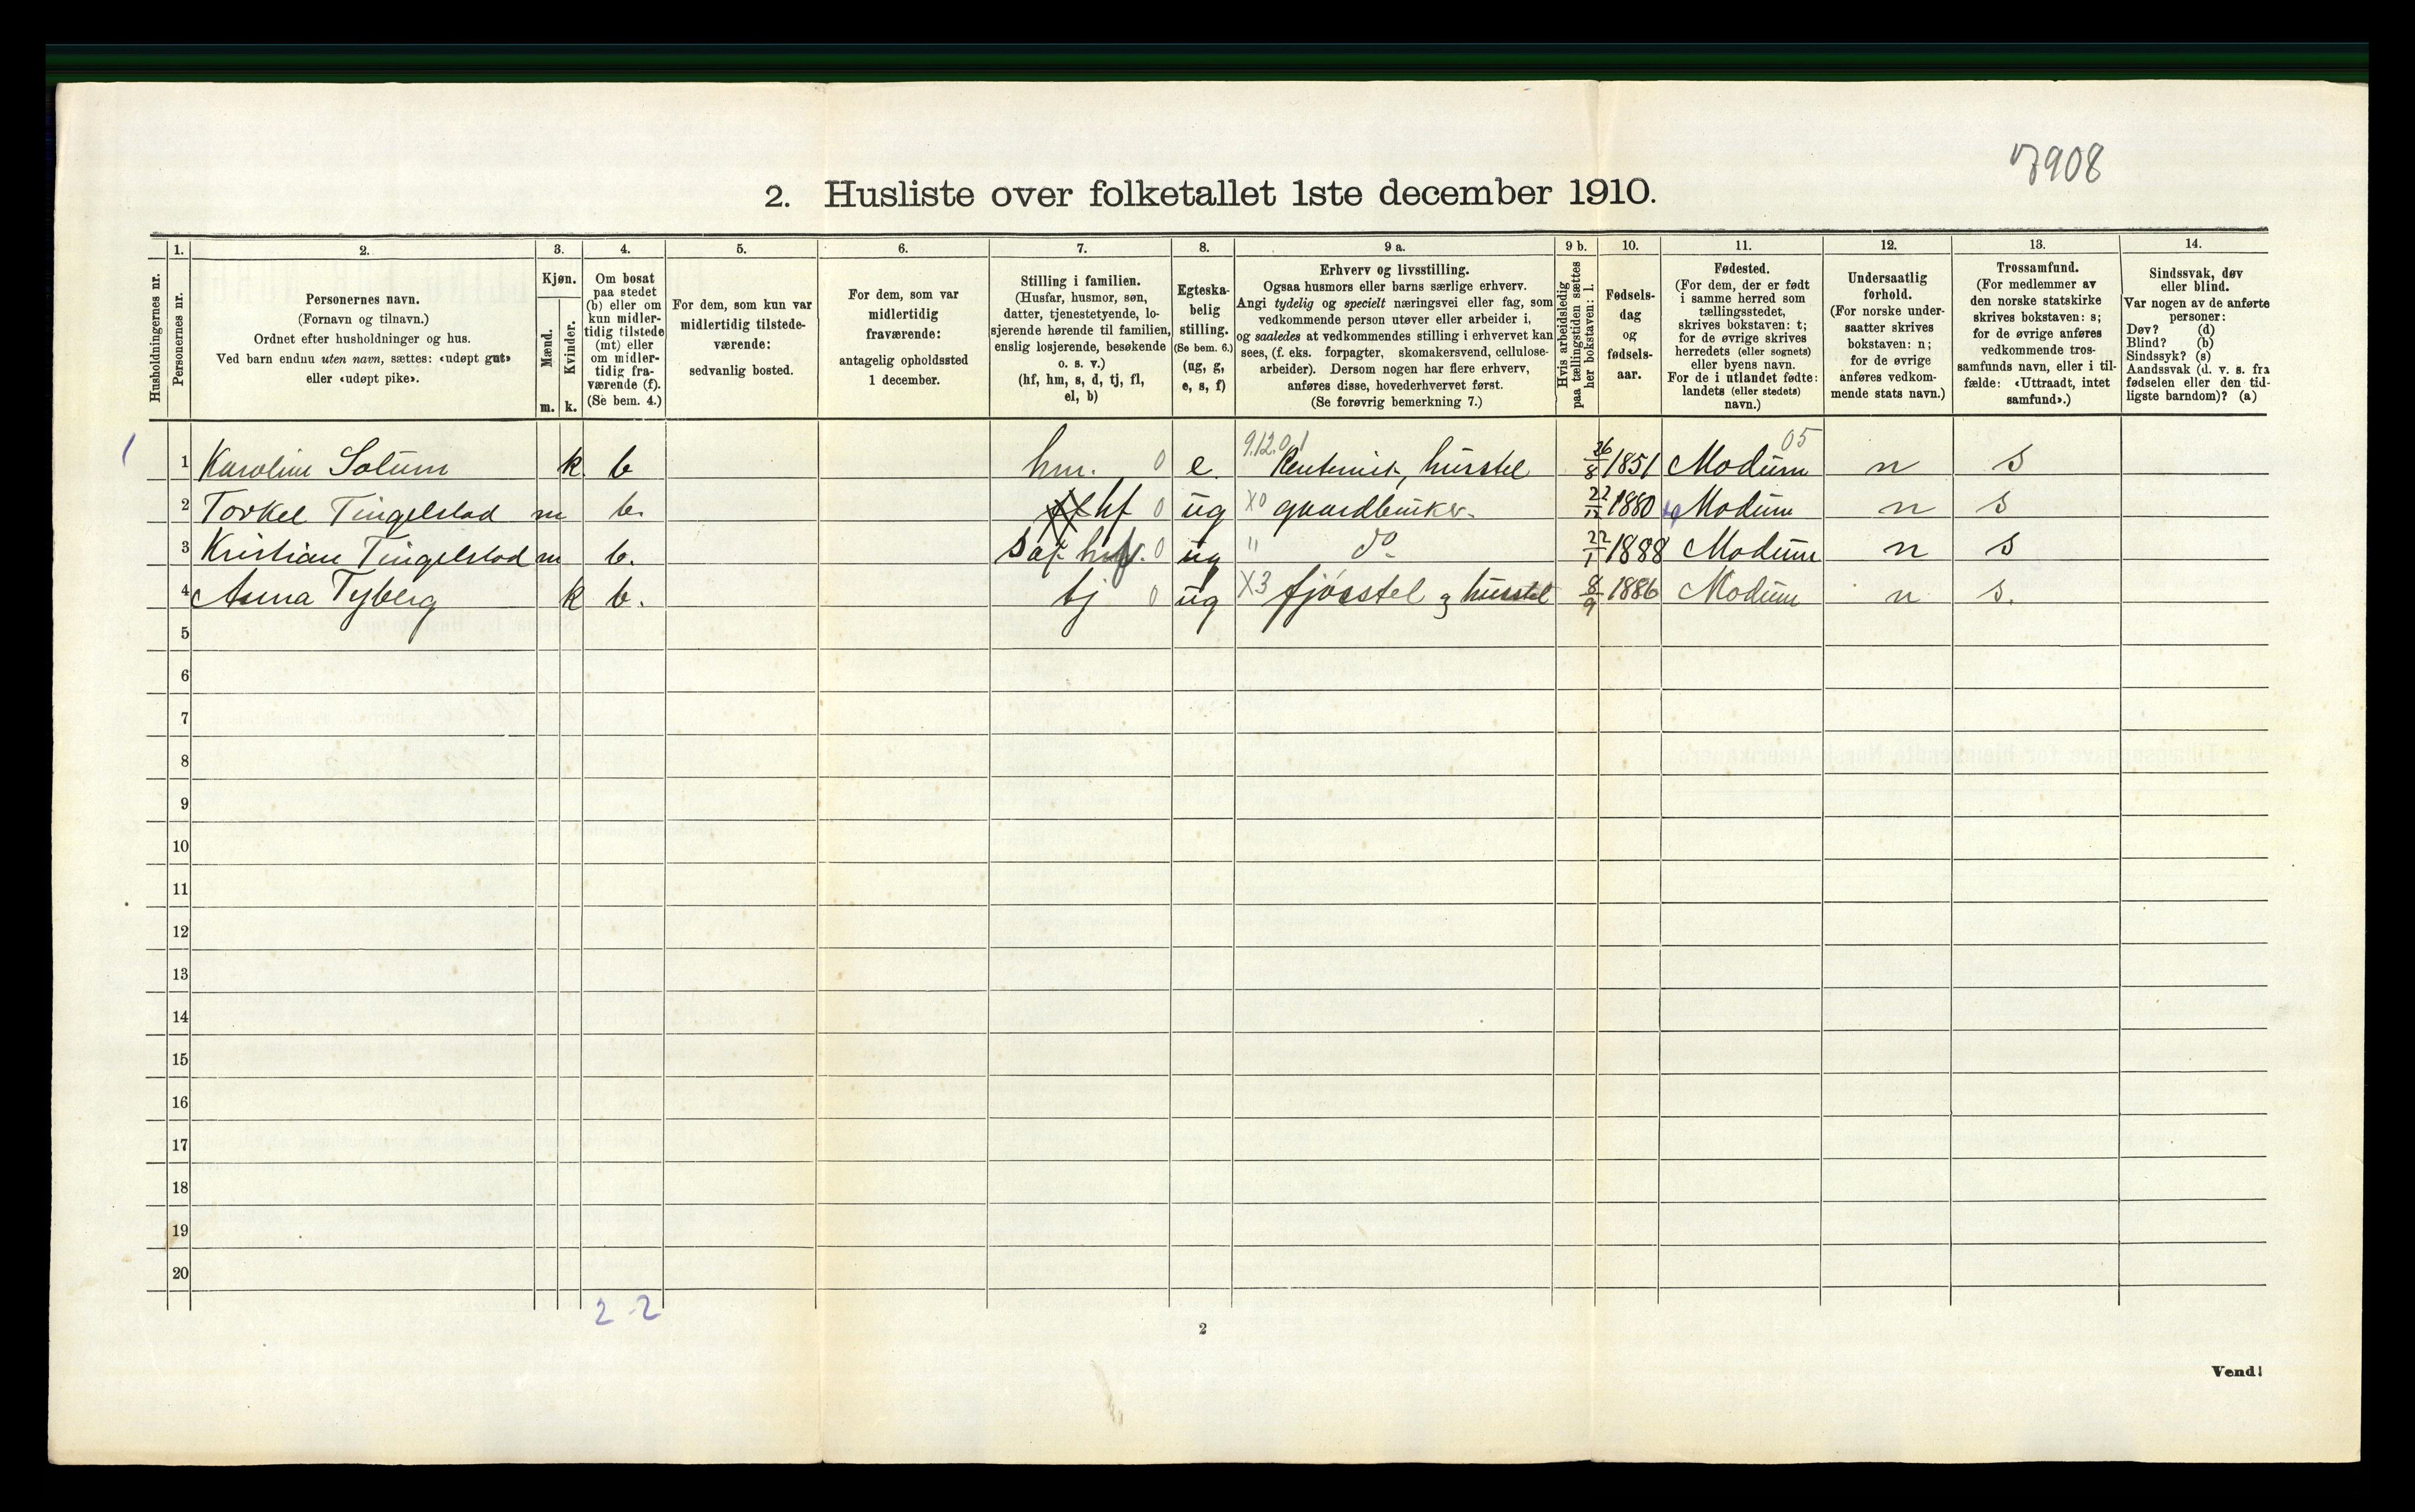 7908
2. Husliste over folketallet 1ste december 1910.
Husholdningernes nr.
1.
Personernes nr.
2.
Personernes navn.
(Fornavn og tilnavn.)
Ordnet efter husholdninger og hus.
Ved barn endnu uten navn, sættes: «udøpt gut»
eller «udøpt pike».
3.
Kjøn.
Mænd.
Kvinder.
m. k.
4.
Om bosat
paa stedet
(b) eller om
kun midler-
tidig tilstede
(mt) eller
om midler-
tidig fra-
værende (f).
(Se bem. 4.)
5.
For dem, som kun var
midlertidig tilstede-
værende:
sedvanlig bosted.
6.
For dem, som var
midlertidig
fraværende:
antagelig opholdssted
1 december.
7.
Stilling i familien.
(Husfar, husmor, søn,
datter, tjenestetyende, lo-
sjerende hørende til familien,
enslig losjerende, besøkende
o. s. v.)
(hf, hm, s, d, tj, fl,
el, b)
8.
Egteska-
belig
stilling.
(Se bem. 6.)
(ug, g,
e, s, f)
9 a.
Erhverv og livsstilling.
Ogsaa husmors eller barns særlige erhverv.
Angi tydelig og specielt næringsvei eller fag, som
vedkommende person utøver eller arbeider i,
og saaledes at vedkommendes stilling i erhvervet kan
sees, (f. eks. forpagter, skomakersvend, cellulose-
arbeider). Dersom nogen har flere erhverv,
anføres disse, hovederhvervet først.
(Se forøvrig bemerkning 7.)
9 b.
Hvis arbeidsledig
paa tællingstiden sættes
her bokstaven: l.
10.
Fødsels-
dag
og
fødsels-
aar.
11.
Fødested.
(For dem, der er født
i samme herred som
tællingsstedet,
skrives bokstaven: t;
for de øvrige skrives
herredets (eller sognets)
eller byens navn.
For de i utlandet fødte:
landets (eller stedets)
navn.)
12.
Undersaatlig
forhold.
(For norske under-
saatter skrives
bokstaven: n;
for de øvrige
anføres vedkom-
mende stats navn.)
13.
Trossamfund.
(For medlemmer av
den norske statskirke
skrives bokstaven: s;
for de øvrige anføres
vedkommende tros-
samfunds navn, eller i til-
fælde: «Uttraadt, intet
samfund».)
14.
Sindssvak, døv
eller blind.
Var nogen av de anførte
personer:
Døv? (d)
Blind? (b)
Sindssyk? (s)
Aandssvak (d. v. s. fra
fødselen eller den tid-
ligste barndom)? (a)
1 1 Karoline Solum k b hm. 0 e 9.12.01 Rentenist, husstel 26/8 1851 Modum 05 n s
2 Torkel Tingelstad m b. hf 0 ug X0 gaardbruker. 22/12 1880 Modum n s
3 Kristian Tingelstad m b. 0 ug " do 22/1 1888 Modum n s
4 Anna Tyberg k b. tj 0 ug X3 fjøsstel og husstel 8/9 1886 Modum n s.
5
6
7
8
9
10
11
12
13
14
15
16
17
18
19
20
2 - 2
2
Vend!